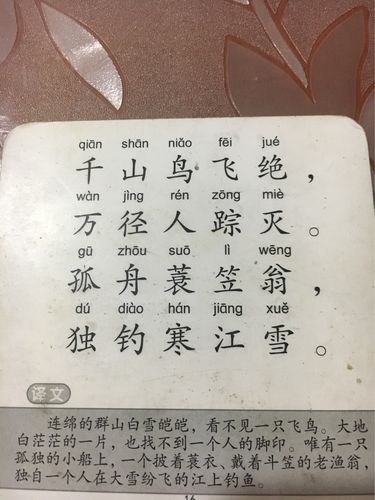 qiān shān niǎo fēi jué
千山鸟飞绝，
wàn jìng rén zōng miè
万径人踪灭。
gū zhōu suō lì wēng
孤舟蓑笠翁，
dú diào hán jiāng xuě
独钓寒江雪。
译文
连绵的群山白雪皑皑，看不见一只飞鸟。大地
白茫茫的一片，也找不到一个人的脚印。唯有一只
孤独的小船上，一个披着蓑衣、戴着斗笠的老渔翁，
独自一个人在大雪纷飞的江上钓鱼。
16